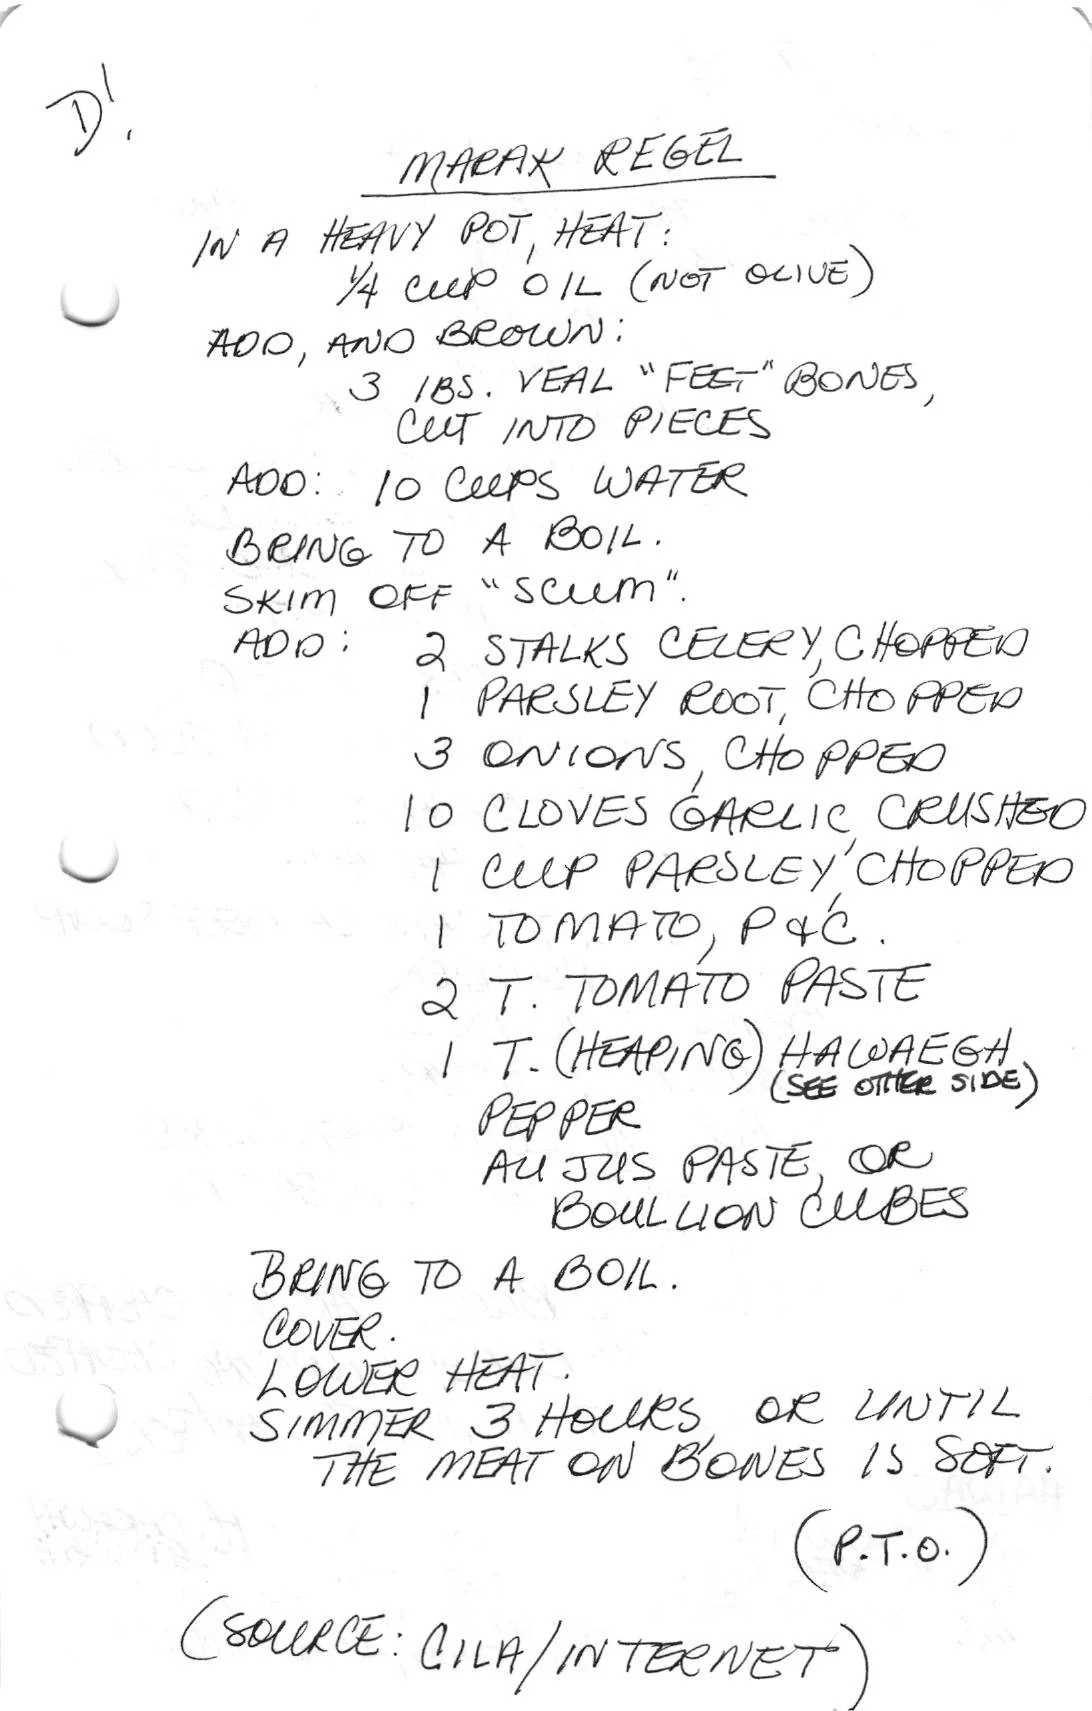 D!
MARAK REGEL
IN A HEAVY POT, HEAT:
1/4 CUP OIL (NOT OLIVE)
ADD, AND BROWN:
3 LBS. VEAL "FEET" BONES,
CUT INTO PIECES
ADD: 10 CUPS WATER
BRING TO A BOIL.
SKIM OFF "SCUM".
ADD: 2 STALKS CELERY, CHOPPED
1 PARSLEY ROOT, CHOPPED
3 ONIONS, CHOPPED
10 CLOVES GARLIC, CRUSHED
1 CUP PARSLEY, CHOPPED
1 TOMATO, P&C.
2 T. TOMATO PASTE
1 T. (HEAPING) HAWAEGH
(SEE OTHER SIDE)
PEPPER
AU JUS PASTE, OR
BOULLION CUBES
BRING TO A BOIL.
COVER.
LOWER HEAT.
SIMMER 3 HOURS, OR UNTIL
THE MEAT ON BONES IS SOFT.
(P.T.O.)
(SOURCE: GILA/INTERNET)